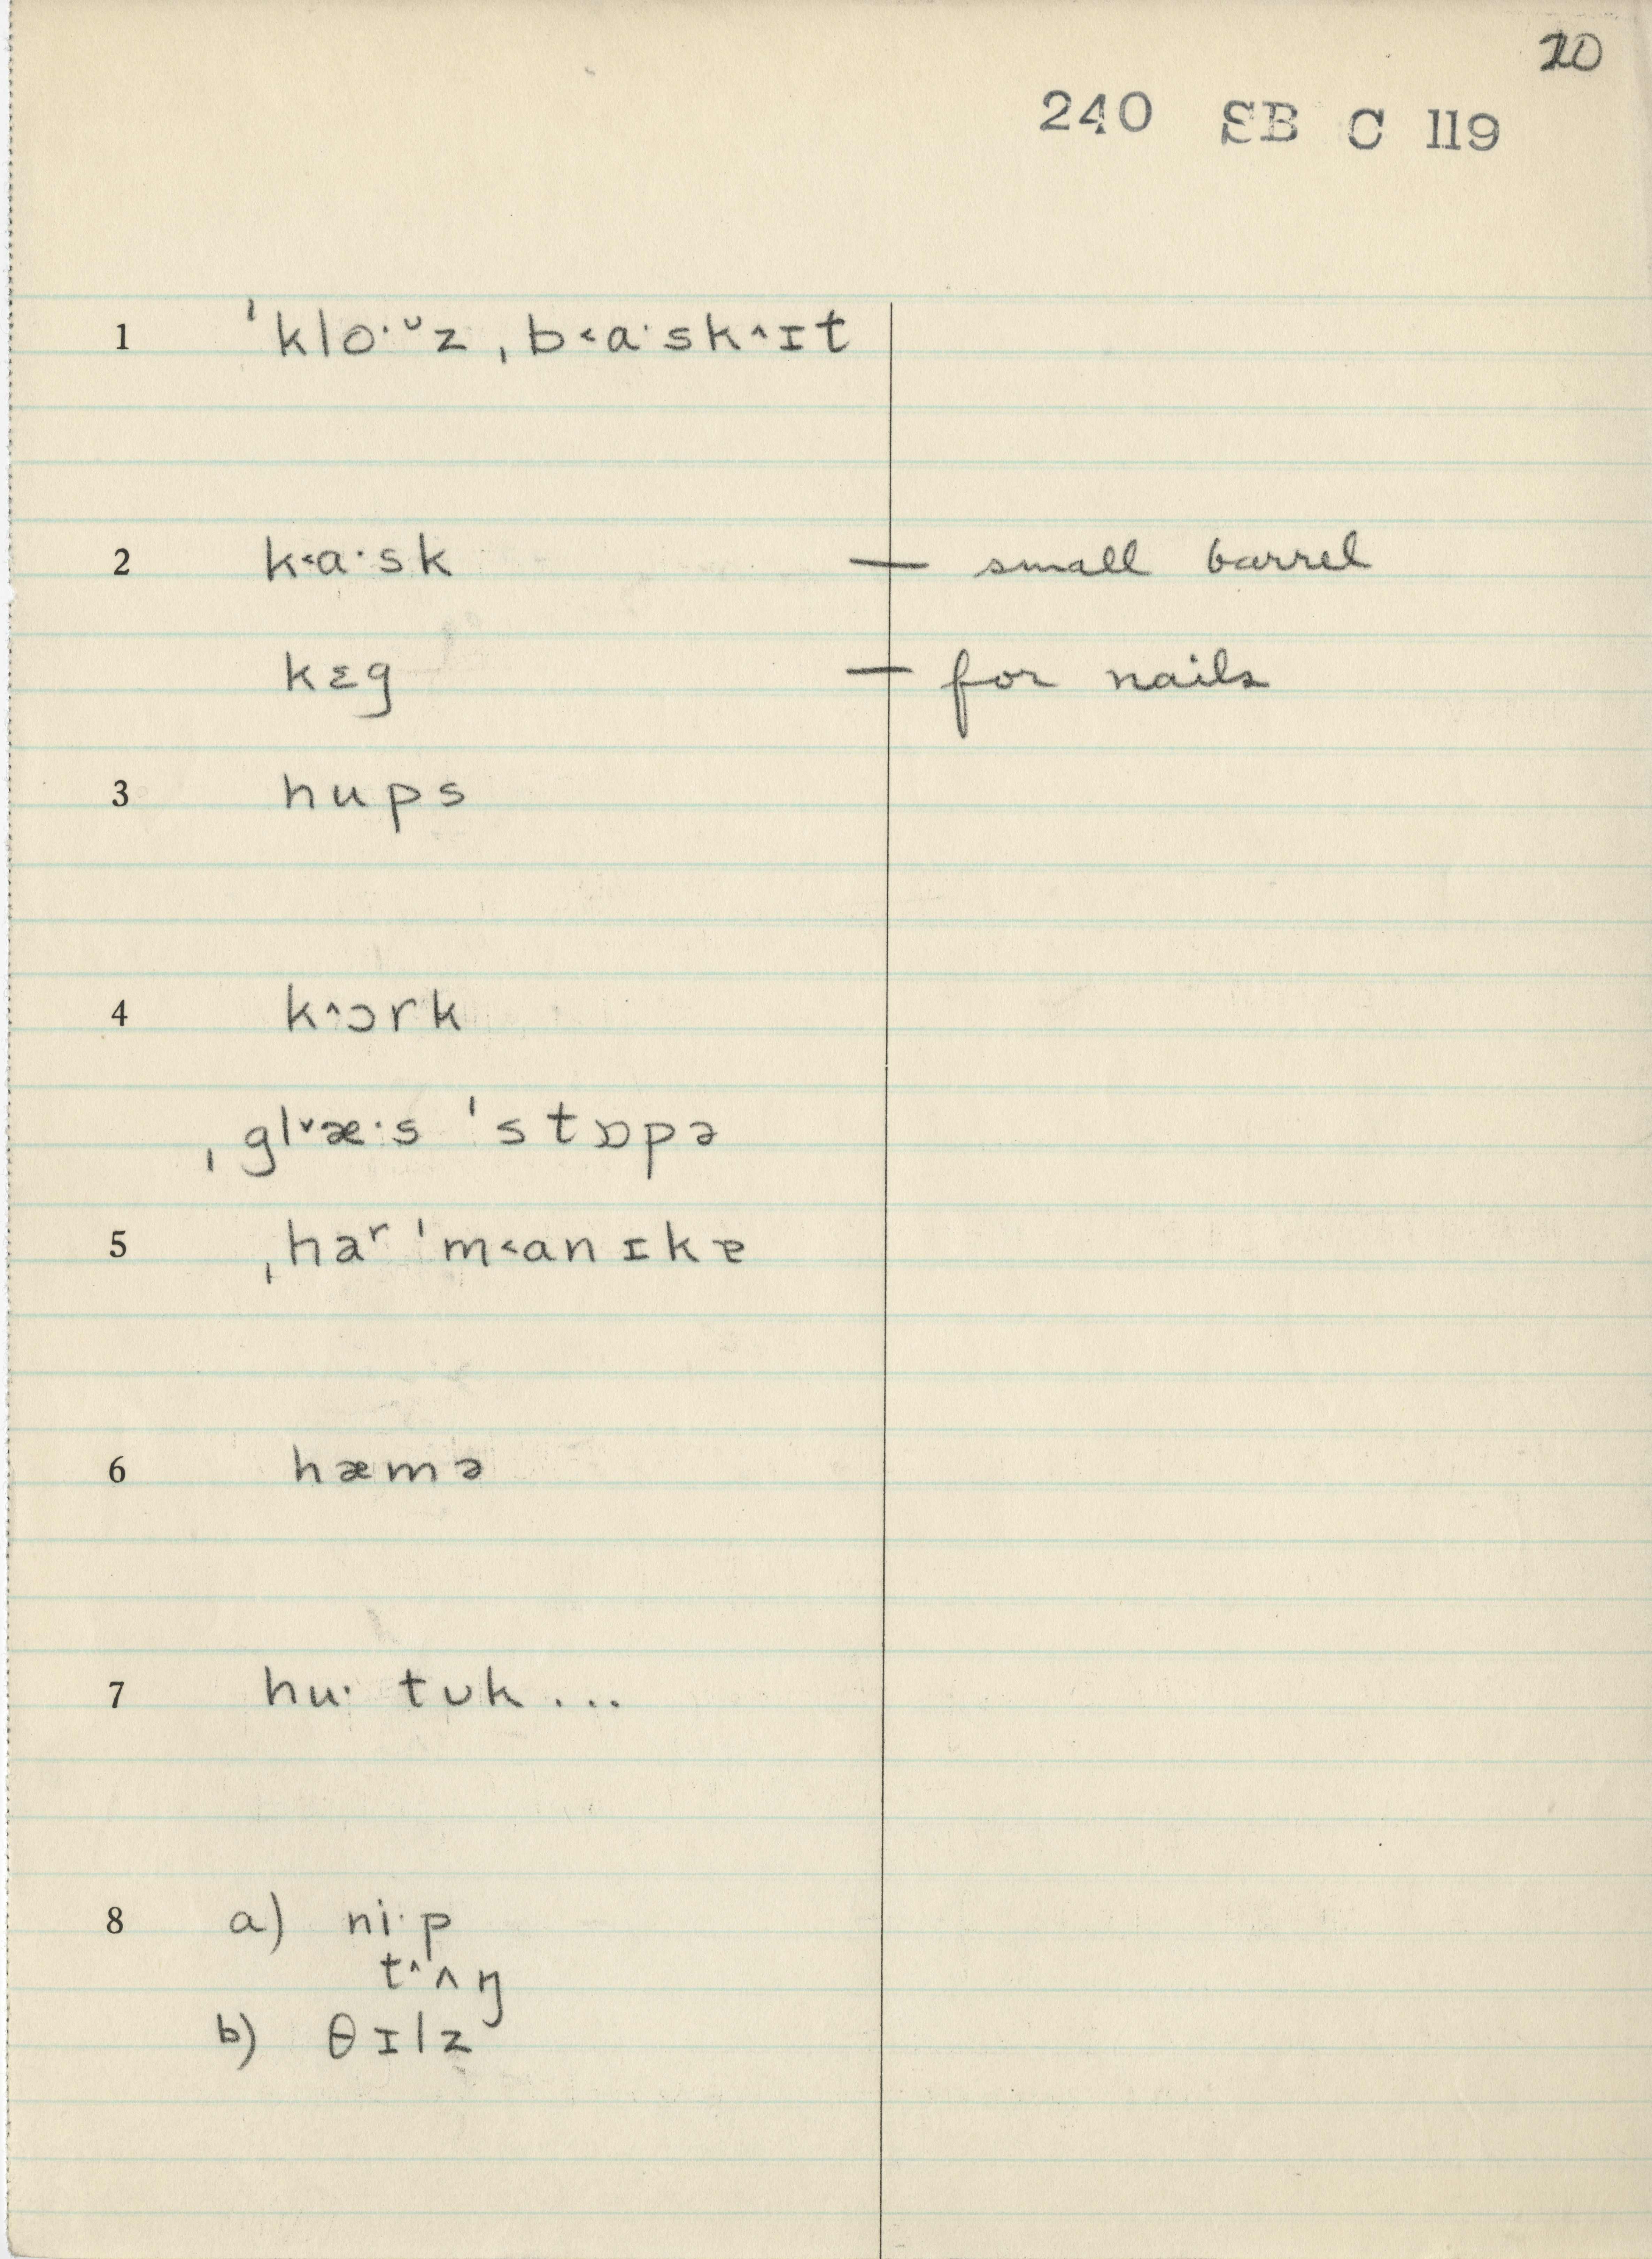 20
240 SB C 119
1 ˈkloˑᶸz ˌb˂aˑsk˄ɪt
2 k˂aˑsk — small barrel
kɛg — for nails
3 hups
4 k˄ɔrk
ˌgl˅æˑs ˈstɒpə
5 ˌhəʳˈm˂anɪkɐ
6 hæmə
7 huˑ tʊk ...
8 a) niˑp
t˄ʌŋ
b) θɪlz